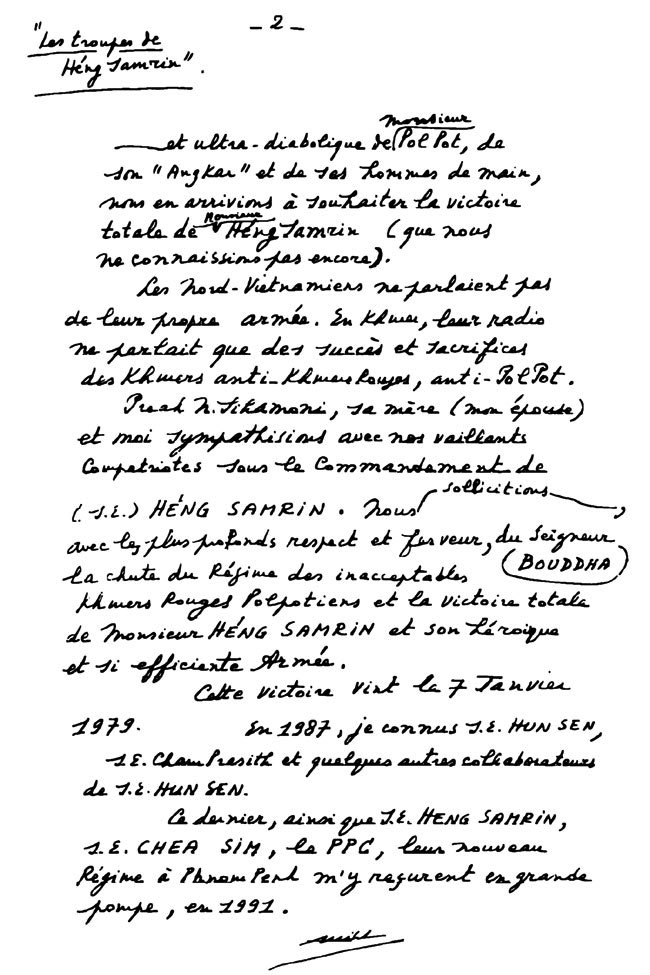 - 2 -
"Les troupes de
Héng Samrin".
Monsieur
et ultra-diabolique de Pol Pot, de
son "Angkar" et de ses hommes de main,
nous en arrivions à souhaiter la victoire
Monsieur
totale de Héng Samrin (que nous
ne connaissions pas encore).
Les Nord-Vietnamiens ne parlaient pas
de leur propre armée. En Khmer, leur radio
ne parlait que des succès et sacrifices
des Khmers anti-Khmers Rouges, anti-Pol Pot.
Preah N. Sihamoni, sa mère (mon épouse)
et moi sympathisions avec nos vaillants
Compatriotes sous le Commandement de
(S.E.) HÉNG SAMRIN. Nous sollicitions,
avec les plus profonds respect et ferveur, du Seigneur
(BOUDDHA)
la chute du Régime des inacceptables
Khmers Rouges Polpotiens et la victoire totale
de Monsieur HÉNG SAMRIN et son héroïque
et si efficiente Armée.
Cette victoire vint le 7 Janvier
1979. En 1987, je connus S.E. HUN SEN,
S.E. Cham Prasith et quelques autres collaborateurs
de S.E. HUN SEN.
Ce dernier, ainsi que S.E. HENG SAMRIN,
S.E. CHEA SIM, le PPC, leur nouveau
Régime à Phnom Penh m'y reçurent en grande
pompe, en 1991.